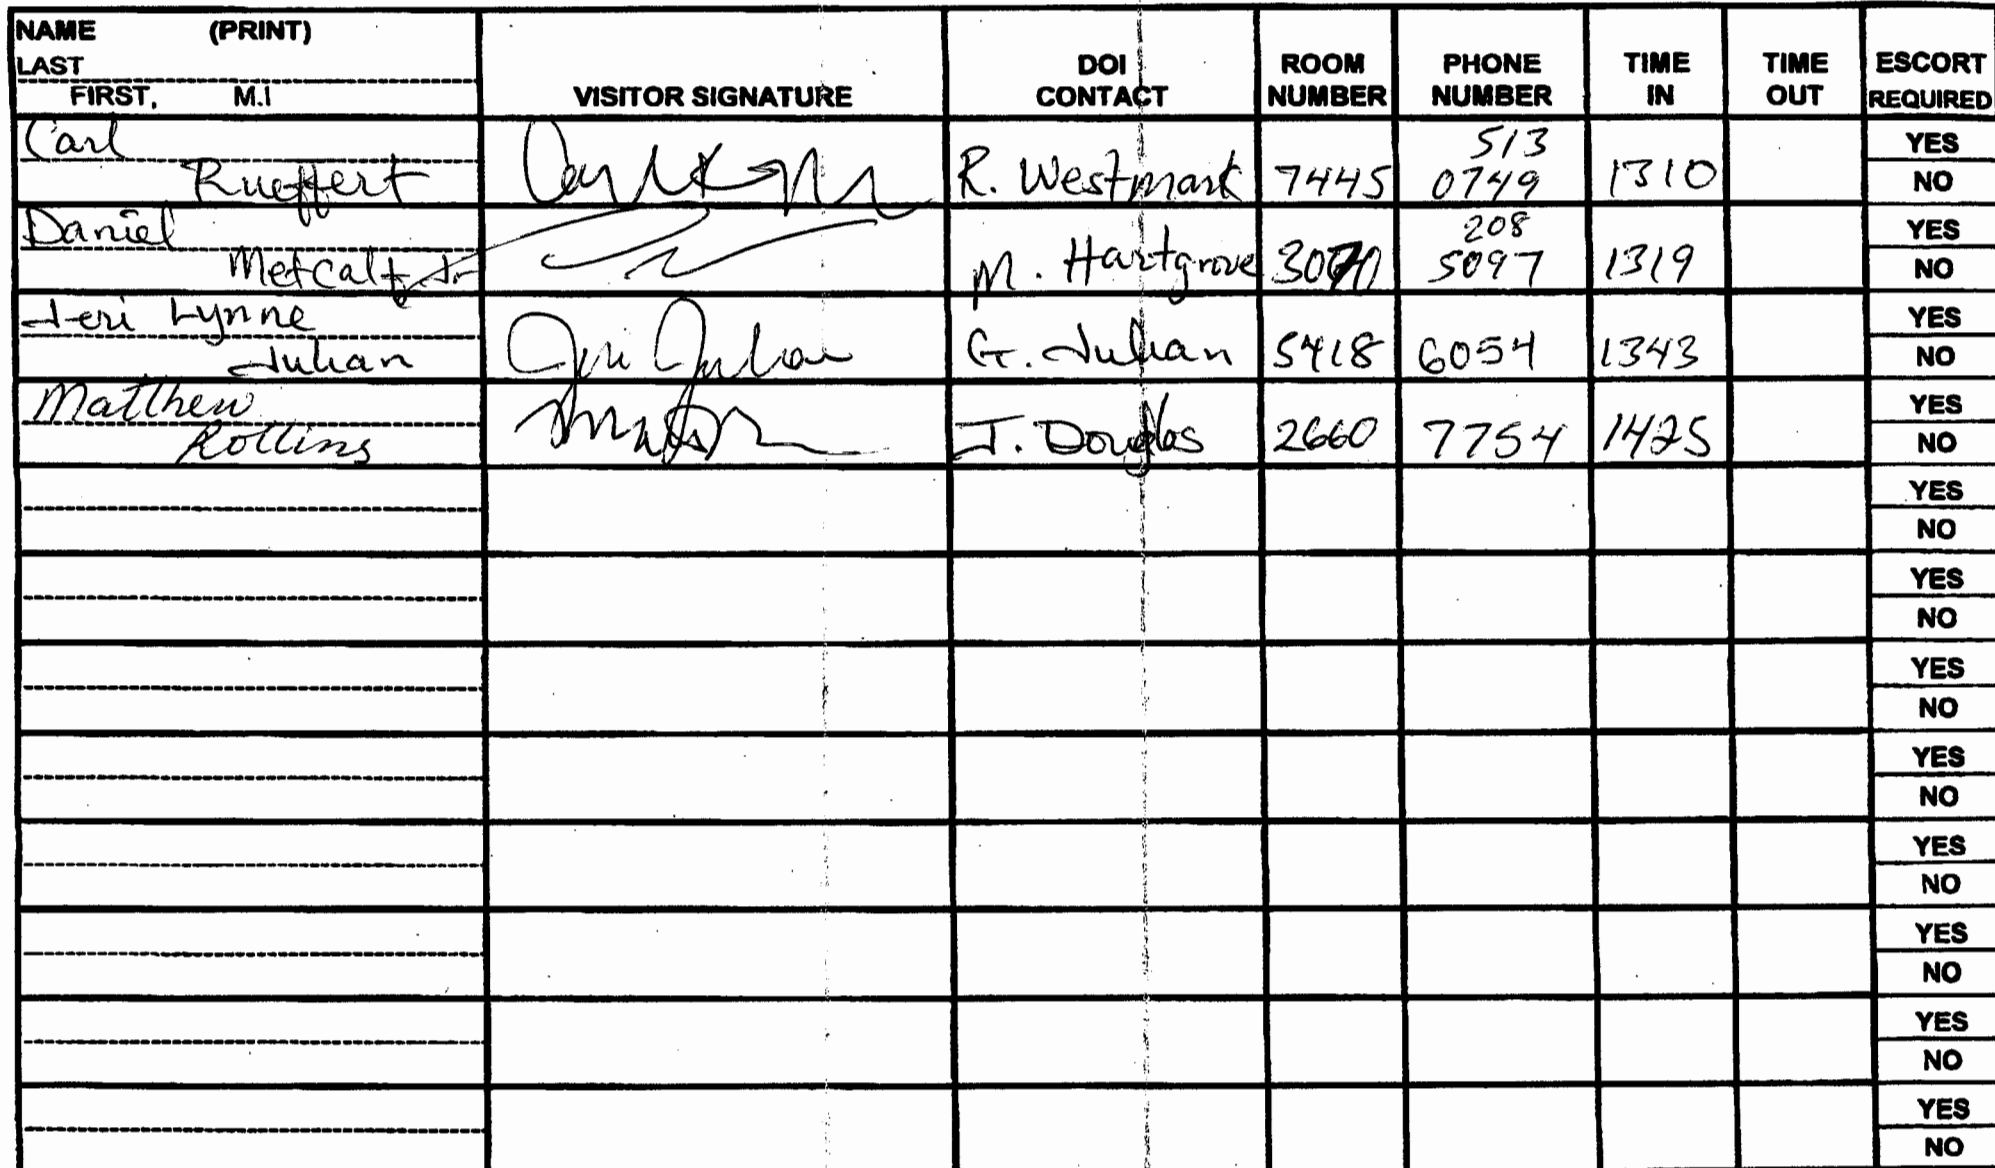 NAME (PRINT)
LAST
FIRST, M.I
VISITOR SIGNATURE
DOI CONTACT
ROOM NUMBER
PHONE NUMBER
TIME IN
TIME OUT
ESCORT REQUIRED
Carl 513 YES
Rueffert R. Westmark 7445 0749 1310 NO
Daniel 208 YES
Metcalf Jr M. Hartgrove 5097 1319 NO
Jeri Lynne YES
Julian Jeri Julian G. Julian 5418 6054 1343 NO
Matthew YES
Rollins J. Douglas 2660 7754 1425 NO
YES
NO
YES
NO
YES
NO
YES
NO
YES
NO
YES
NO
YES
NO
YES
NO